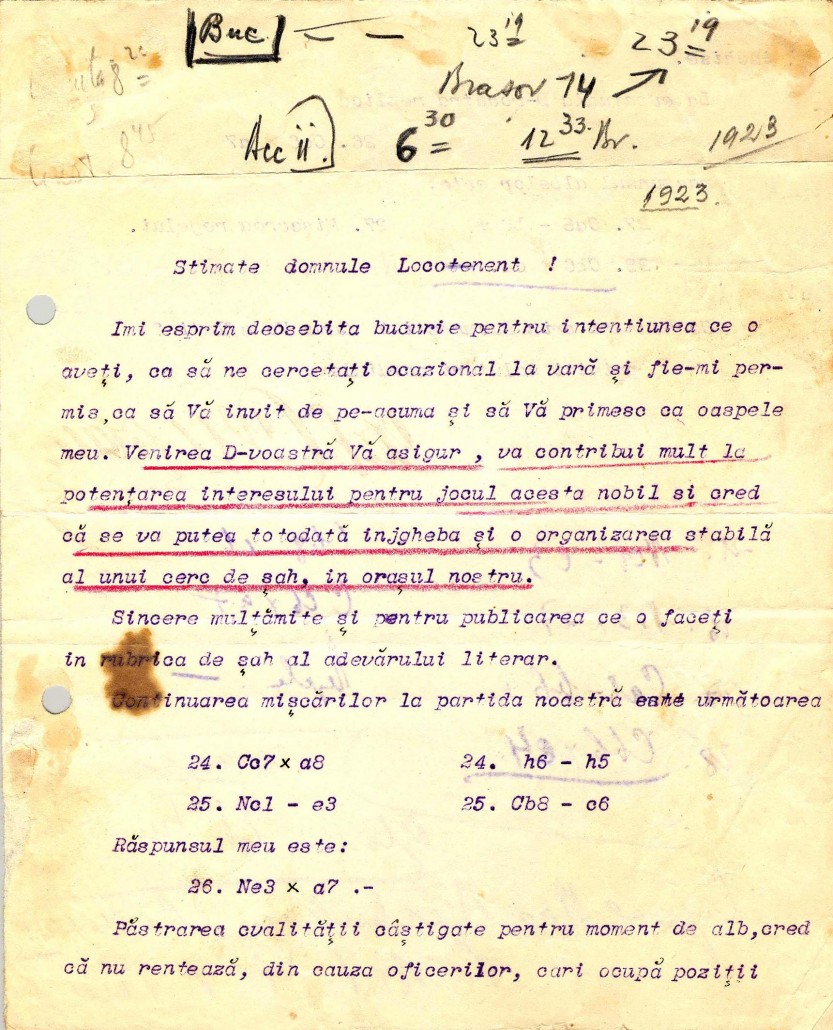 Buc
23 19
23 19
Brasov 14
Acc II.
6 30
12 33. Br.
1923
8 45
1923.
Stimate domnule Locotenent !
Imi esprim deosebita bucurie pentru intentiunea ce o
aveți, ca să ne cercetați ocazional la vară și fie-mi per-
mis,ca să Vă invit de pe-acuma și să Vă primesc ca oaspele
meu. Venirea D-voastră Vă asigur , va contribui mult la
potențarea interesului pentru jocul acesta nobil si cred
că se va putea totodată injgheba și o organizarea stabilă
al unui cerc de șah, in orașul nostru.
Sincere mulțămite și pentru publicarea ce o faceți
in rubrica de șah al adevărului literar.
Continuarea mișcărilor la partida noastră este următoarea
24. Cc7 x a8 24. h6 - h5
25. Nc1 - e3 25. Cb8 - c6
Răspunsul meu este:
26. Ne3 x a7 .-
Păstrarea cvalității câștigate pentru moment de alb,cred
că nu rentează, din cauza oficerilor, cari ocupă poziții